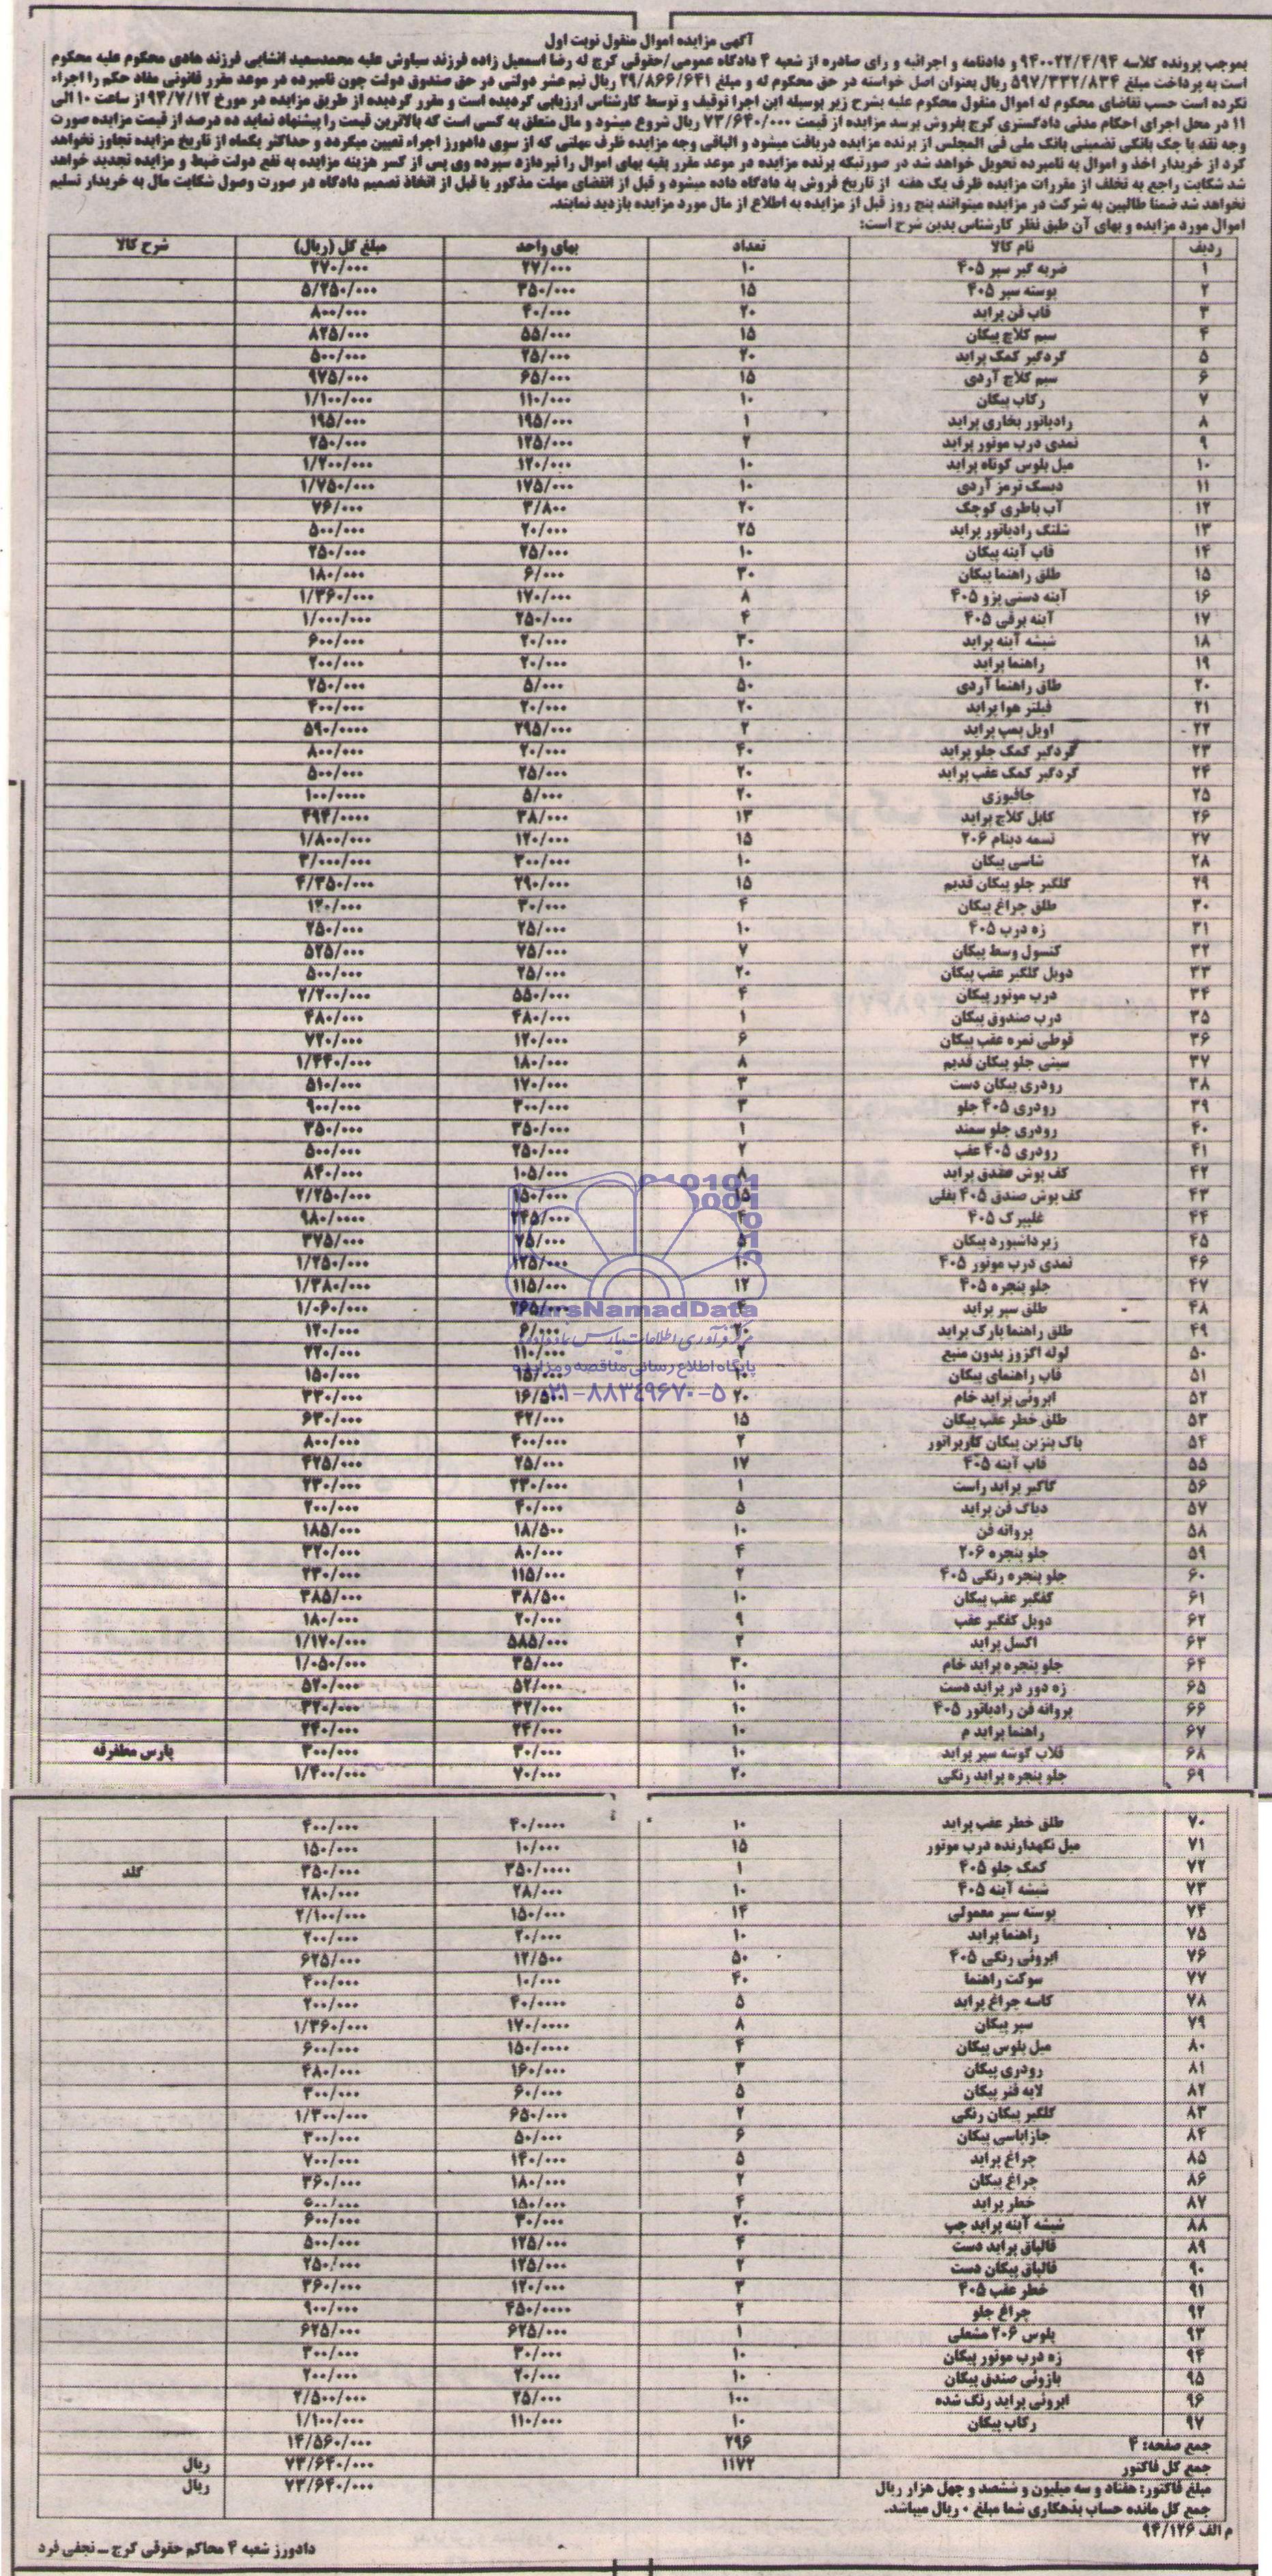 آگهی مزایده اموال منقول نوبت اول
بموجب پرونده کلاسه ۹۴۰۰۲۲/۴/۹۴ و دادنامه و اجرائیه و رای صادره از شعبه ۴ دادگاه عمومی/حقوقی کرج له رضا اسمعیل زاده فرزند سیاوش علیه محمدسعید انشایی فرزند هادی محکوم علیه محکوم
است به پرداخت مبلغ ۵۹۷/۳۳۲/۸۳۴ ریال بعنوان اصل خواسته در حق محکوم له و مبلغ ۲۹/۸۶۶/۶۴۱ ریال نیم عشر دولتی در حق صندوق دولت چون نامبرده در موعد مقرر قانونی مفاد حکم را اجراء
نکرده است حسب تقاضای محکوم له اموال منقول محکوم علیه بشرح زیر بوسیله این اجرا توقیف و توسط کارشناس ارزیابی گردیده است و مقرر گردیده از طریق مزایده در مورخ ۹۴/۷/۱۲ از ساعت ۱۰ الی
۱۱ در محل اجرای احکام مدنی دادگستری کرج بفروش برسد مزایده از قیمت ۷۳/۶۴۰/۰۰۰ ریال شروع میشود و مال متعلق به کسی است که بالاترین قیمت را پیشنهاد نماید ده درصد از قیمت مزایده صورت
وجه نقد یا چک بانکی تضمینی بانک ملی فی المجلس از برنده مزایده دریافت میشود و الباقی وجه مزایده ظرف مهلتی که از سوی دادورز اجراء تعیین میگردد و حداکثر یکماه از تاریخ مزایده تجاوز نخواهد
کرد از خریدار اخذ و اموال به نامبرده تحویل خواهد شد در صورتیکه برنده مزایده در موعد مقرر بقیه بهای اموال را نپردازد سپرده وی پس از کسر هزینه مزایده به نفع دولت ضبط و مزایده تجدید خواهد
شد شکایت راجع به تخلف از مقررات مزایده ظرف یک هفته از تاریخ فروش به دادگاه داده میشود و قبل از انقضای مهلت مذکور یا قبل از اتخاذ تصمیم دادگاه در صورت وصول شکایت مال به خریدار تسلیم
نخواهد شد ضمنا طالبین به شرکت در مزایده میتوانند پنج روز قبل از مزایده به اطلاع از مال مورد مزایده بازدید نمایند.
اموال مورد مزایده و بهای آن طبق نظر کارشناس بدین شرح است:
ردیف نام کالا تعداد بهای واحد مبلغ کل (ریال) شرح کالا
۱ ضربه گیر سپر ۴۰۵ ۱۰ ۲۷/۰۰۰ ۲۷۰/۰۰۰
۲ پوسته سپر ۴۰۵ ۱۵ ۳۵۰/۰۰۰ ۵/۲۵۰/۰۰۰
۳ قاب فن پراید ۲۰ ۴۰/۰۰۰ ۸۰۰/۰۰۰
۴ سیم کلاچ پیکان ۱۵ ۵۵/۰۰۰ ۸۲۵/۰۰۰
۵ گردگیر کمک پراید ۲۰ ۲۵/۰۰۰ ۵۰۰/۰۰۰
۶ سیم کلاچ آردی ۱۵ ۶۵/۰۰۰ ۹۷۵/۰۰۰
۷ رکاب پیکان ۱۰ ۱۱۰/۰۰۰ ۱/۱۰۰/۰۰۰
۸ رادیاتور بخاری پراید ۱ ۱۹۵/۰۰۰ ۱۹۵/۰۰۰
۹ نمدی درب موتور پراید ۲ ۱۲۵/۰۰۰ ۲۵۰/۰۰۰
۱۰ میل پلوس کوتاه پراید ۱۰ ۱۲۰/۰۰۰ ۱/۲۰۰/۰۰۰
۱۱ دیسک ترمز آردی ۱۰ ۱۷۵/۰۰۰ ۱/۷۵۰/۰۰۰
۱۲ آب باطری کوچک ۲۰ ۳/۸۰۰ ۷۶/۰۰۰
۱۳ شلنگ رادیاتور پراید ۲۵ ۲۰/۰۰۰ ۵۰۰/۰۰۰
۱۴ قاب آینه پیکان ۱۰ ۲۵/۰۰۰ ۲۵۰/۰۰۰
۱۵ طلق راهنما پیکان ۳۰ ۶/۰۰۰ ۱۸۰/۰۰۰
۱۶ آینه دستی پژو ۴۰۵ ۸ ۱۷۰/۰۰۰ ۱/۳۶۰/۰۰۰
۱۷ آینه برقی ۴۰۵ ۴ ۲۵۰/۰۰۰ ۱/۰۰۰/۰۰۰
۱۸ شیشه آینه پراید ۳۰ ۲۰/۰۰۰ ۶۰۰/۰۰۰
۱۹ راهنما پراید ۱۰ ۲۰/۰۰۰ ۲۰۰/۰۰۰
۲۰ طاق راهنما آردی ۵۰ ۵/۰۰۰ ۲۵۰/۰۰۰
۲۱ فیلتر هوا پراید ۲۰ ۲۰/۰۰۰ ۴۰۰/۰۰۰
۲۲ اویل پمپ پراید ۲ ۲۹۵/۰۰۰ ۵۹۰/۰۰۰۰
۲۳ گردگیر کمک جلو پراید ۴۰ ۲۰/۰۰۰ ۸۰۰/۰۰۰
۲۴ گردگیر کمک عقب پراید ۲۰ ۲۵/۰۰۰ ۵۰۰/۰۰۰
۲۵ جافیوزی ۲۰ ۵/۰۰۰ ۱۰۰/۰۰۰۰
۲۶ کابل کلاچ پراید ۱۳ ۳۸/۰۰۰ ۴۹۴/۰۰۰۰
۲۷ تسمه دینام ۲۰۶ ۱۵ ۱۲۰/۰۰۰ ۱/۸۰۰/۰۰۰
۲۸ شاسی پیکان ۱۰ ۳۰۰/۰۰۰ ۳/۰۰۰/۰۰۰
۲۹ گلگیر جلو پیکان قدیم ۱۵ ۲۹۰/۰۰۰ ۴/۳۵۰/۰۰۰
۳۰ طلق چراغ پیکان ۴ ۳۰/۰۰۰ ۱۲۰/۰۰۰
۳۱ زه درب ۴۰۵ ۱۰ ۲۵/۰۰۰ ۲۵۰/۰۰۰
۳۲ کنسول وسط پیکان ۷ ۷۵/۰۰۰ ۵۲۵/۰۰۰
۳۳ دوبل گلگیر عقب پیکان ۲۰ ۲۵/۰۰۰ ۵۰۰/۰۰۰
۳۴ درب موتور پیکان ۴ ۵۵۰/۰۰۰ ۲/۲۰۰/۰۰۰
۳۵ درب صندوق پیکان ۱ ۴۸۰/۰۰۰ ۴۸۰/۰۰۰
۳۶ قوطی نمره عقب پیکان ۶ ۱۲۰/۰۰۰ ۷۲۰/۰۰۰
۳۷ سینی جلو پیکان قدیم ۸ ۱۸۰/۰۰۰ ۱/۴۴۰/۰۰۰
۳۸ رودری پیکان دست ۳ ۱۷۰/۰۰۰ ۵۱۰/۰۰۰
۳۹ رودری ۴۰۵ جلو ۳ ۳۰۰/۰۰۰ ۹۰۰/۰۰۰
۴۰ رودری جلو سمند ۱ ۳۵۰/۰۰۰ ۳۵۰/۰۰۰
۴۱ رودری ۴۰۵ عقب ۲ ۲۵۰/۰۰۰ ۵۰۰/۰۰۰
۴۲ کف پوش صندق پراید ۸ ۱۰۵/۰۰۰ ۸۴۰/۰۰۰
۴۳ کف پوش صندق ۴۰۵ بغلی ۱۵ ۱۵۰/۰۰۰ ۲/۲۵۰/۰۰۰
۴۴ غلبیرک ۴۰۵ ۴ ۲۴۵/۰۰۰ ۹۸۰/۰۰۰۰
۴۵ زیرداشبورد پیکان ۵ ۷۵/۰۰۰ ۳۷۵/۰۰۰
۴۶ نمدی درب موتور ۴۰۵ ۱۰ ۱۲۵/۰۰۰ ۱/۲۵۰/۰۰۰
۴۷ جلو پنجره ۴۰۵ ۱۲ ۱۱۵/۰۰۰ ۱/۳۸۰/۰۰۰
۴۸ طلق سپر پراید ۴ ۲۶۵/۰۰۰ ۱/۰۶۰/۰۰۰
۴۹ طلق راهنما پارک پراید ۲۰ ۶/۰۰۰ ۱۲۰/۰۰۰
۵۰ لوله اگزوز بدون منبع ۲ ۱۱۰/۰۰۰ ۲۲۰/۰۰۰
۵۱ قاب راهنمای پیکان ۱۰ ۱۵/۰۰۰ ۱۵۰/۰۰۰
۵۲ ابروئی پراید خام ۲۰ ۱۶/۵۰۰ ۳۳۰/۰۰۰
۵۳ طلق خطر عقب پیکان ۱۵ ۴۲/۰۰۰ ۶۳۰/۰۰۰
۵۴ باک بنزین پیکان کاربراتور ۲ ۴۰۰/۰۰۰ ۸۰۰/۰۰۰
۵۵ قاب آینه ۴۰۵ ۱۷ ۲۵/۰۰۰ ۴۲۵/۰۰۰
۵۶ گاگیر پراید راست ۱ ۲۳۰/۰۰۰ ۲۳۰/۰۰۰
۵۷ دیاگ فن پراید ۵ ۴۰/۰۰۰ ۲۰۰/۰۰۰
۵۸ پروانه فن ۱۰ ۱۸/۵۰۰ ۱۸۵/۰۰۰
۵۹ جلو پنجره ۲۰۶ ۴ ۸۰/۰۰۰ ۳۲۰/۰۰۰
۶۰ جلو پنجره رنگی ۴۰۵ ۲ ۱۱۵/۰۰۰ ۲۳۰/۰۰۰
۶۱ کفگیر عقب پیکان ۱۰ ۳۸/۵۰۰ ۳۸۵/۰۰۰
۶۲ دوبل کفگیر عقب ۹ ۲۰/۰۰۰ ۱۸۰/۰۰۰
۶۳ اکسل پراید ۲ ۵۸۵/۰۰۰ ۱/۱۷۰/۰۰۰
۶۴ جلو پنجره پراید خام ۳۰ ۳۵/۰۰۰ ۱/۰۵۰/۰۰۰
۶۵ زه دور در پراید دست ۱۰ ۵۲/۰۰۰ ۵۲۰/۰۰۰
۶۶ پروانه فن رادیاتور ۴۰۵ ۱۰ ۳۲/۰۰۰ ۳۲۰/۰۰۰
۶۷ راهنما پراید م ۱۰ ۲۴/۰۰۰ ۲۴۰/۰۰۰
۶۸ قلاب گوشه سپر پراید ۱۰ ۳۰/۰۰۰ ۳۰۰/۰۰۰ پارس مظفرقه
۶۹ جلو پنجره پراید رنگی ۲۰ ۷۰/۰۰۰ ۱/۴۰۰/۰۰۰
۷۰ طلق خطر عقب پراید ۱۰ ۴۰/۰۰۰۰ ۴۰۰/۰۰۰
۷۱ میل نگهدارنده درب موتور ۱۵ ۱۰/۰۰۰ ۱۵۰/۰۰۰
۷۲ کمک جلو ۴۰۵ ۱ ۳۵۰/۰۰۰۰ ۳۵۰/۰۰۰ کلد
۷۳ شیشه آینه ۴۰۵ ۱۰ ۲۸/۰۰۰ ۲۸۰/۰۰۰
۷۴ پوسته سپر معمولی ۱۴ ۱۵۰/۰۰۰ ۲/۱۰۰/۰۰۰
۷۵ راهنما پراید ۱۰ ۲۰/۰۰۰ ۲۰۰/۰۰۰
۷۶ ابروئی رنگی ۴۰۵ ۵۰ ۱۲/۵۰۰ ۶۲۵/۰۰۰
۷۷ سوکت راهنما ۴۰ ۱۰/۰۰۰ ۴۰۰/۰۰۰
۷۸ کاسه چراغ پراید ۵ ۴۰/۰۰۰۰ ۲۰۰/۰۰۰
۷۹ سپر پیکان ۸ ۱۷۰/۰۰۰۰ ۱/۳۶۰/۰۰۰
۸۰ میل پلوس پیکان ۴ ۱۵۰/۰۰۰۰ ۶۰۰/۰۰۰
۸۱ رودری پیکان ۳ ۱۶۰/۰۰۰ ۴۸۰/۰۰۰
۸۲ لایه فنر پیکان ۵ ۶۰/۰۰۰ ۳۰۰/۰۰۰
۸۳ گلگیر پیکان رنگی ۲ ۶۵۰/۰۰۰ ۱/۳۰۰/۰۰۰
۸۴ جازاپاسی پیکان ۶ ۵۰/۰۰۰ ۳۰۰/۰۰۰
۸۵ چراغ پراید ۵ ۱۴۰/۰۰۰ ۷۰۰/۰۰۰
۸۶ چراغ پیکان ۲ ۱۸۰/۰۰۰ ۳۶۰/۰۰۰
۸۷ خطر پراید ۴ ۱۵۰/۰۰۰
۸۸ شیشه آینه پراید چپ ۲۰ ۳۰/۰۰۰ ۶۰۰/۰۰۰
۸۹ قالپاق پراید دست ۴ ۱۲۵/۰۰۰ ۵۰۰/۰۰۰
۹۰ قالپاق پیکان دست ۲ ۱۲۵/۰۰۰ ۲۵۰/۰۰۰
۹۱ خطر عقب ۴۰۵ ۳ ۱۲۰/۰۰۰ ۳۶۰/۰۰۰
۹۲ چراغ جلو ۲ ۴۵۰/۰۰۰۰ ۹۰۰/۰۰۰
۹۳ پلوس ۲۰۶ مشعلی ۱ ۶۲۵/۰۰۰ ۶۲۵/۰۰۰
۹۴ زه درب موتور پیکان ۱۰ ۳۰/۰۰۰ ۳۰۰/۰۰۰
۹۵ بازوئی صندق پیکان ۱۰ ۲۰/۰۰۰ ۲۰۰/۰۰۰
۹۶ ابروئی پراید رنگ شده ۱۰۰ ۲۵/۰۰۰ ۲/۵۰۰/۰۰۰
۹۷ رکاب پیکان ۱۰ ۱۱۰/۰۰۰ ۱/۱۰۰/۰۰۰
جمع صفحه: ۴ ۲۹۶ ۱۴/۵۶۰/۰۰۰
جمع کل فاکتور ۱۱۷۲ ۷۳/۶۴۰/۰۰۰ ریال
۷۳/۶۴۰/۰۰۰ ریال
مبلغ فاکتور: هفتاد و سه میلیون و ششصد و چهل هزار ریال
جمع کل مانده حساب بدهکاری شما مبلغ ۰ ریال میباشد.
م الف ۹۴/۱۲۶
دادورز شعبه ۴ محاکم حقوقی کرج – نجفی فرد
ParsNamadData
مرکز فرآوری اطلاعات پارس نماد داده
پایگاه اطلاع رسانی مناقصه و مزایده
۰۲۱-۸۸۳۴۹۶۷۰-۵